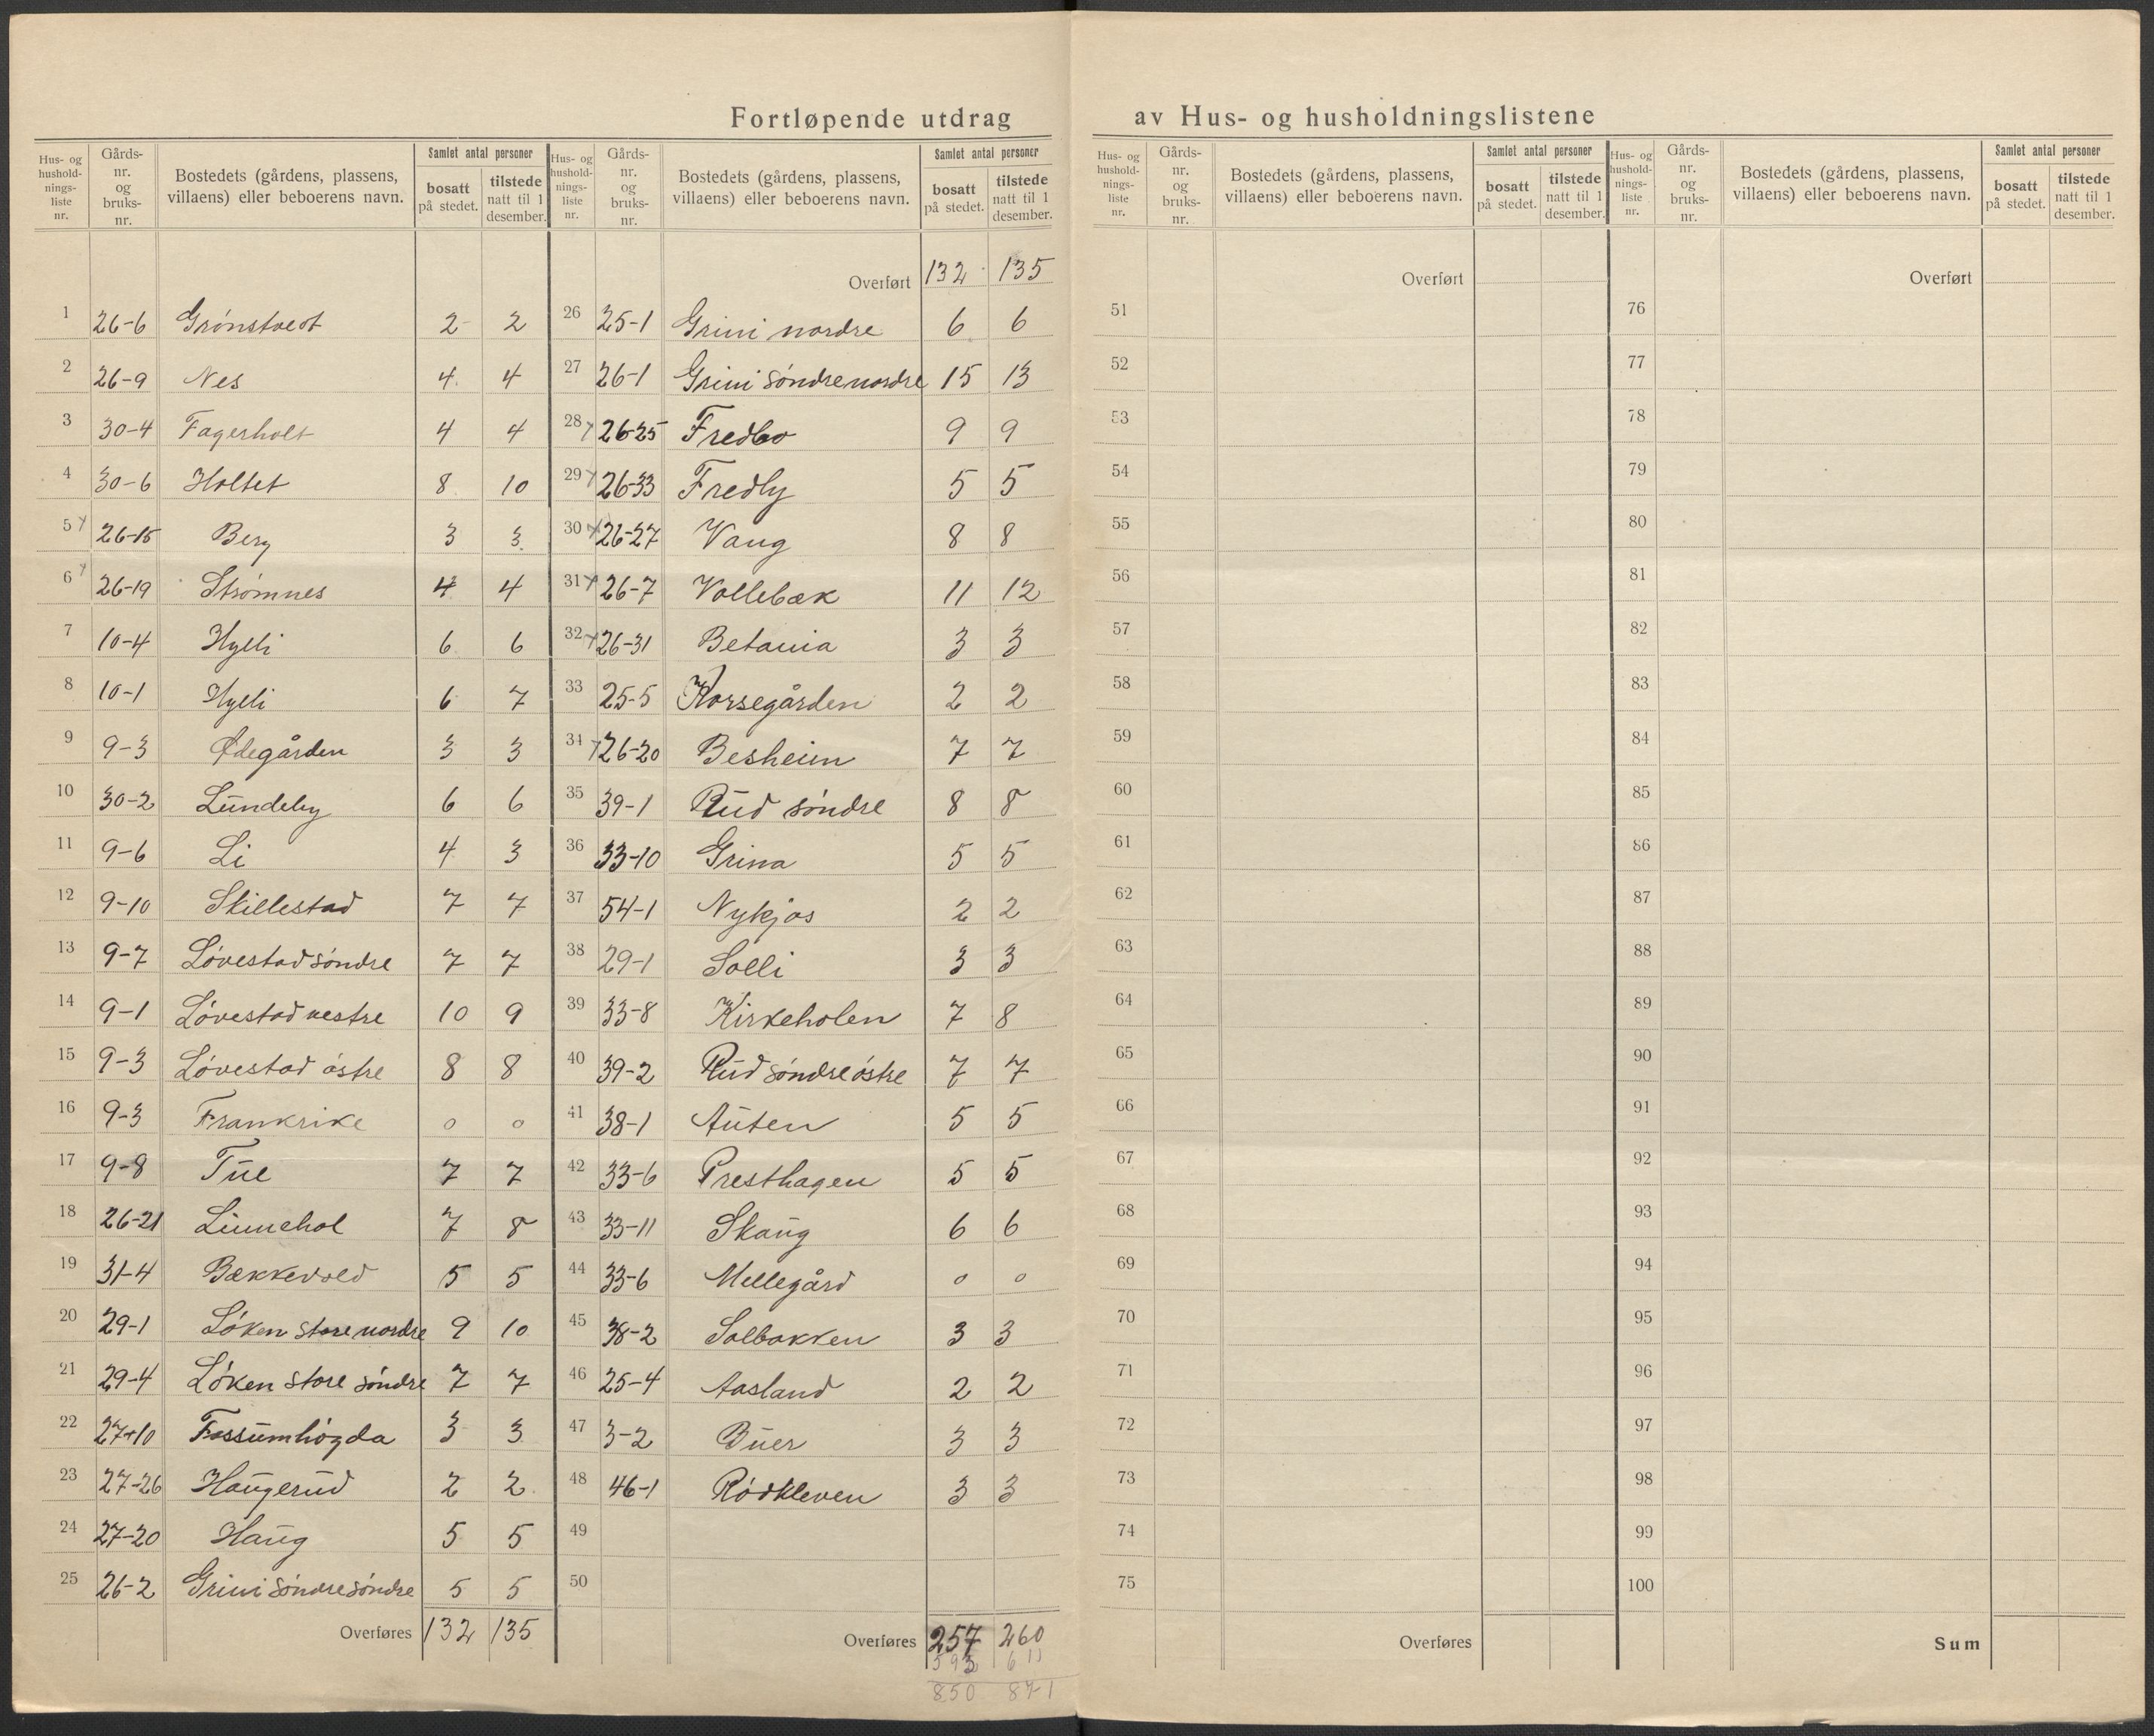 Fortløpende utdrag av Hus- og husholdningslistene
Hus- og hushold-nings-liste nr. | Gårds-nr. og bruks-nr. | Bostedets (gårdens, plassens, villaens) eller beboerens navn. | Samlet antal personer | bosatt på stedet. | tilstede natt til 1 desember.
1 26-6 Grønstvedt 2 2
2 26-9 Nes 4 4
3 30-4 Fagerholt 4 4
4 30-6 Holtet 8 10
5 26-15 Berg 3 3
6 26-19 Strømnes 4 4
7 10-4 Hylli 6 6
8 10-1 Hylli 6 7
9 9-3 Ødegården 3 3
10 30-2 Lundeby 6 6
11 9-6 Li 4 3
12 9-10 Skillestad 7 7
13 9-7 Løvestad søndre 7 7
14 9-1 Løvestad vestre 10 9
15 9-3 Løvestad østre 8 8
16 9-3 Frankrike 0 0
17 9-8 Tue 7 7
18 26-21 Linnehol 7 8
19 31-4 Bækkevold 5 5
20 29-1 Løken store nordre 9 10
21 29-4 Løken store søndre 7 7
22 27+10 Fossumhøgda 3 3
23 27-26 Haugerud 2 2
24 27-20 Haug 5 5
25 26-2 Grini søndre søndre 5 5
Overføres 132 135
Hus- og hushold-nings-liste nr. | Gårds-nr. og bruks-nr. | Bostedets (gårdens, plassens, villaens) eller beboerens navn. | Samlet antal personer | bosatt på stedet. | tilstede natt til 1 desember.
Overført 132 135
26 25-1 Grini nordre 6 6
27 26-1 Grini søndre nordre 15 13
28 26-25 Fredbo 9 9
29 26-33 Fredly 5 5
30 26-27 Vang 8 8
31 26-7 Vollebæk 11 12
32 26-31 Betania 3 3
33 25-5 Korsegården 2 2
34 26-20 Besheim 7 7
35 39-1 Rud søndre 8 8
36 33-10 Grina 5 5
37 54-1 Nykjøs 2 2
38 29-1 Solli 3 3
39 33-8 Kirkeholen 7 8
40 39-2 Rud søndre østre 7 7
41 38-1 Auten 5 5
42 33-6 Presthagen 5 5
43 33-11 Skaug 6 6
44 33-6 Mellegård 0 0
45 38-2 Solbakken 3 3
46 25-4 Aasland 2 2
47 3-2 Buer 3 3
48 46-1 Rødkleven 3 3
49
50
Overføres 257 260
593 611
850 871
Hus- og hushold-nings-liste nr. | Gårds-nr. og bruks-nr. | Bostedets (gårdens, plassens, villaens) eller beboerens navn. | Samlet antal personer | bosatt på stedet. | tilstede natt til 1 desember.
Overført
51
52
53
54
55
56
57
58
59
60
61
62
63
64
65
66
67
68
69
70
71
72
73
74
75
Overføres
Hus- og hushold-nings-liste nr. | Gårds-nr. og bruks-nr. | Bostedets (gårdens, plassens, villaens) eller beboerens navn. | Samlet antal personer | bosatt på stedet. | tilstede natt til 1 desember.
Overført
76
77
78
79
80
81
82
83
84
85
86
87
88
89
90
91
92
93
94
95
96
97
98
99
100
Sum